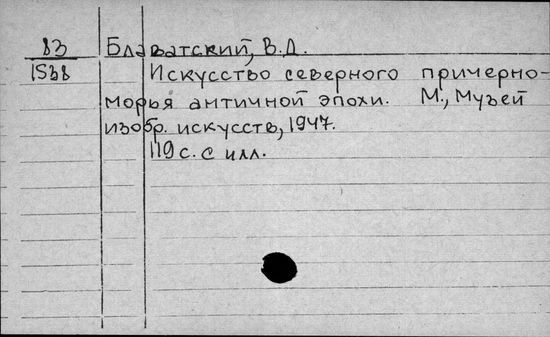 83 Блаватский, В.Д.
1538 Искусство северного причерно-
морья античной эпохи. М., Музей
изобр. искусств, 1947.
119 с. с илл.